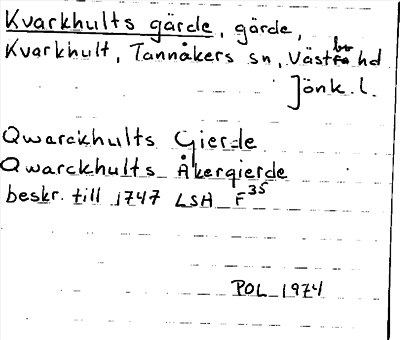 Kvarkhults gärde, gärde,
Kvarkhult, Tannåkers sn, Västbo hd
Jönk. l.
Qwarckhults Gierde
Qwarckhults Åkergierde
beskr. till 1747 LSA F35
POL 1974